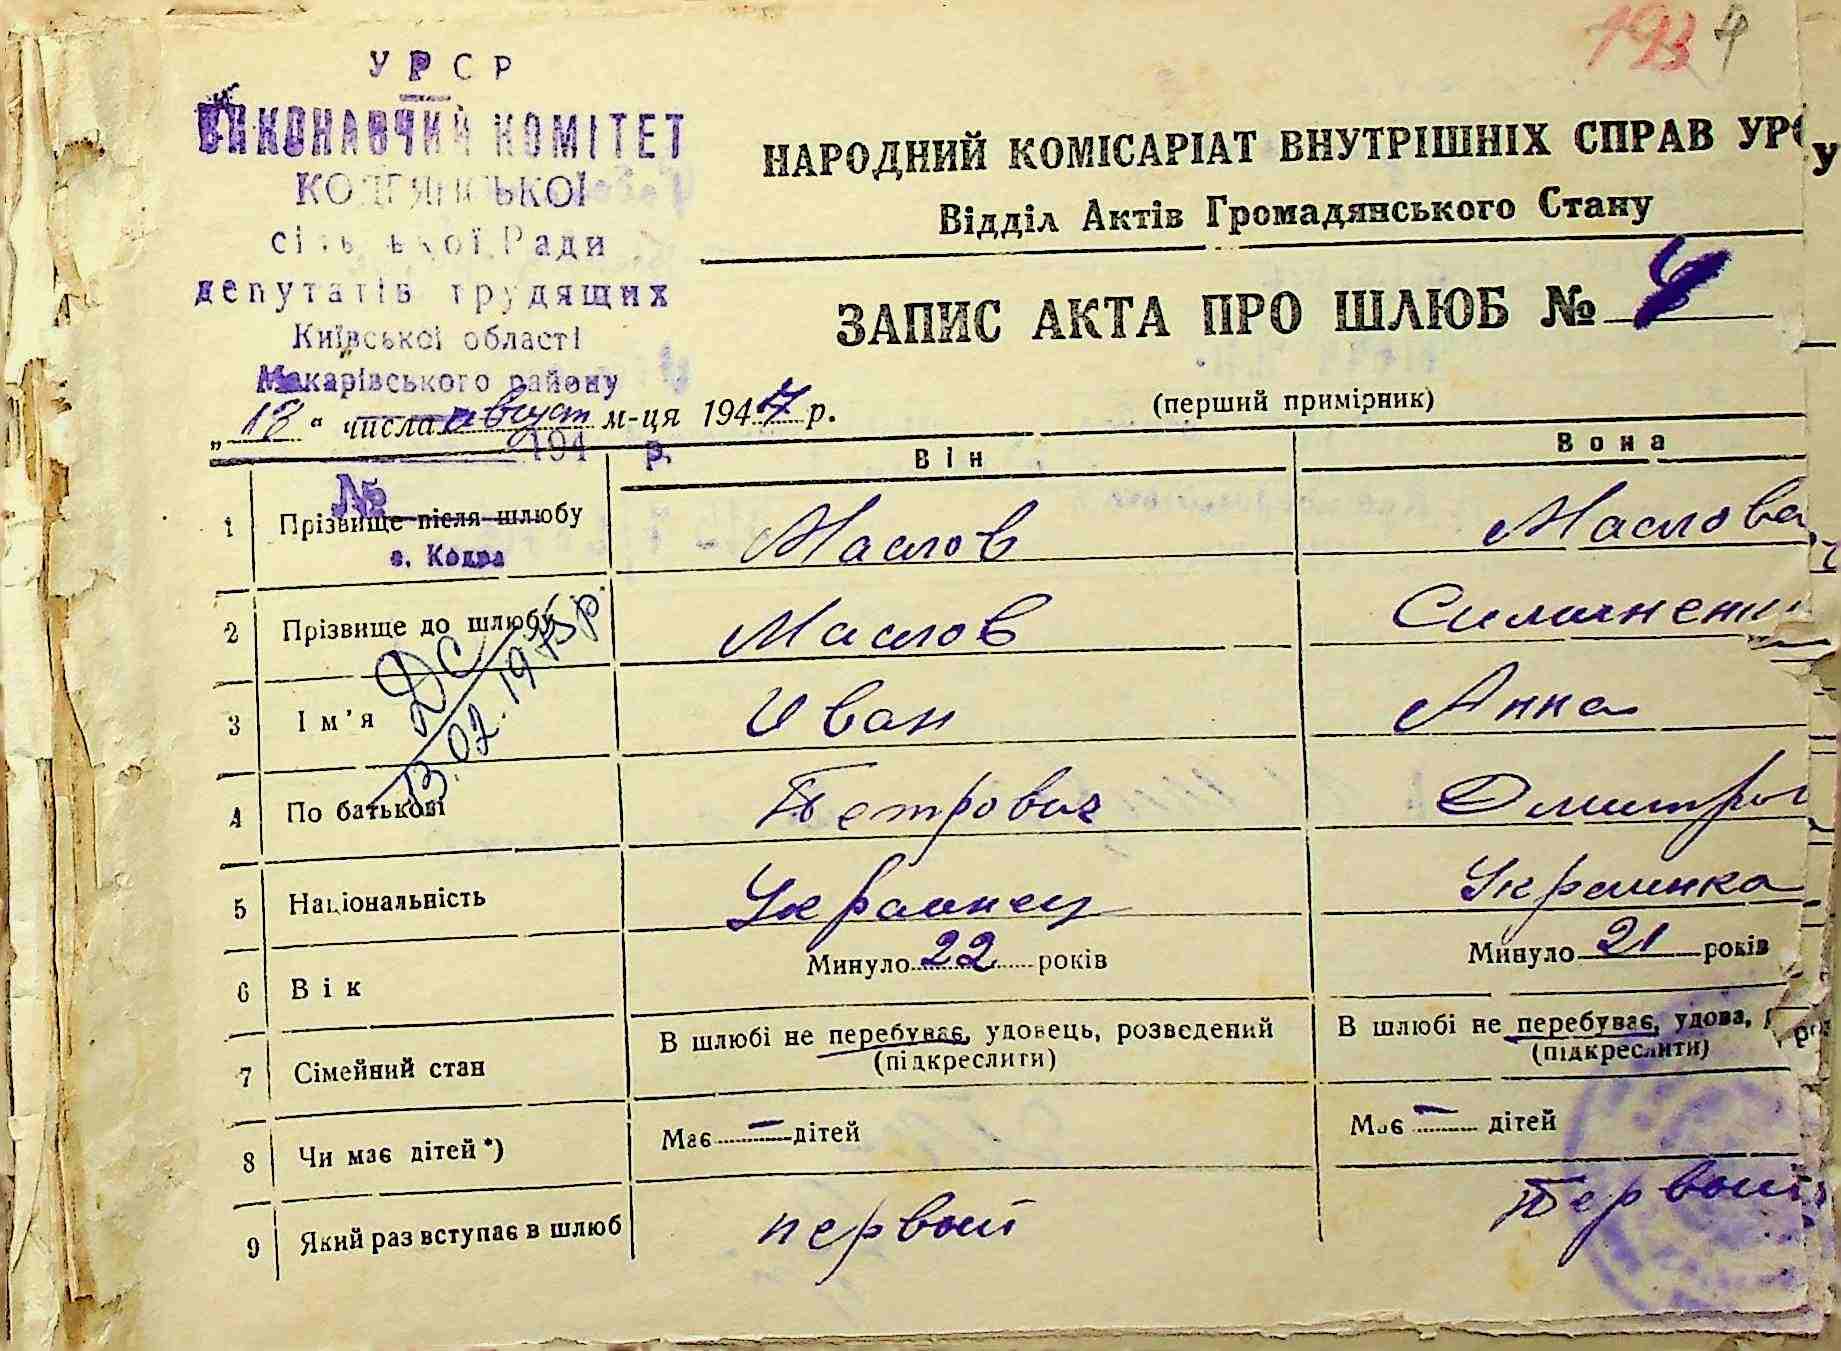 1934
УРСР
ВИКОНАВЧИЙ КОМІТЕТ
КОДРЯНСЬКОЇ
сільської Ради
депутатів трудящих
Київської області
Макарівського району
194 р.
№
с. Кодра
НАРОДНИЙ КОМІСАРІАТ ВНУТРІШНІХ СПРАВ УРС
Відділ Актів Громадянського Стану
ЗАПИС АКТА ПРО ШЛЮБ № 4
(перший примірник)
„18“ числа август м-ця 1947 р.
Він Вона
1 Прізвище після шлюбу Маслов Маслова
2 Прізвище до шлюбу Маслов
3 Ім'я Иван Анна
4 По батькові Петрович Дмитров
5 Національність Украинец Украинка
6 Вік Минуло 22 років Минуло 21 років
7 Сімейний стан В шлюбі не перебуває, удовець, розведений В шлюбі не перебуває, удова,
(підкреслити) (підкреслити)
8 Чи має дітей *) Має — дітей Має — дітей
9 Який раз вступає в шлюб первый Первый
ДС
13.02.1975р.